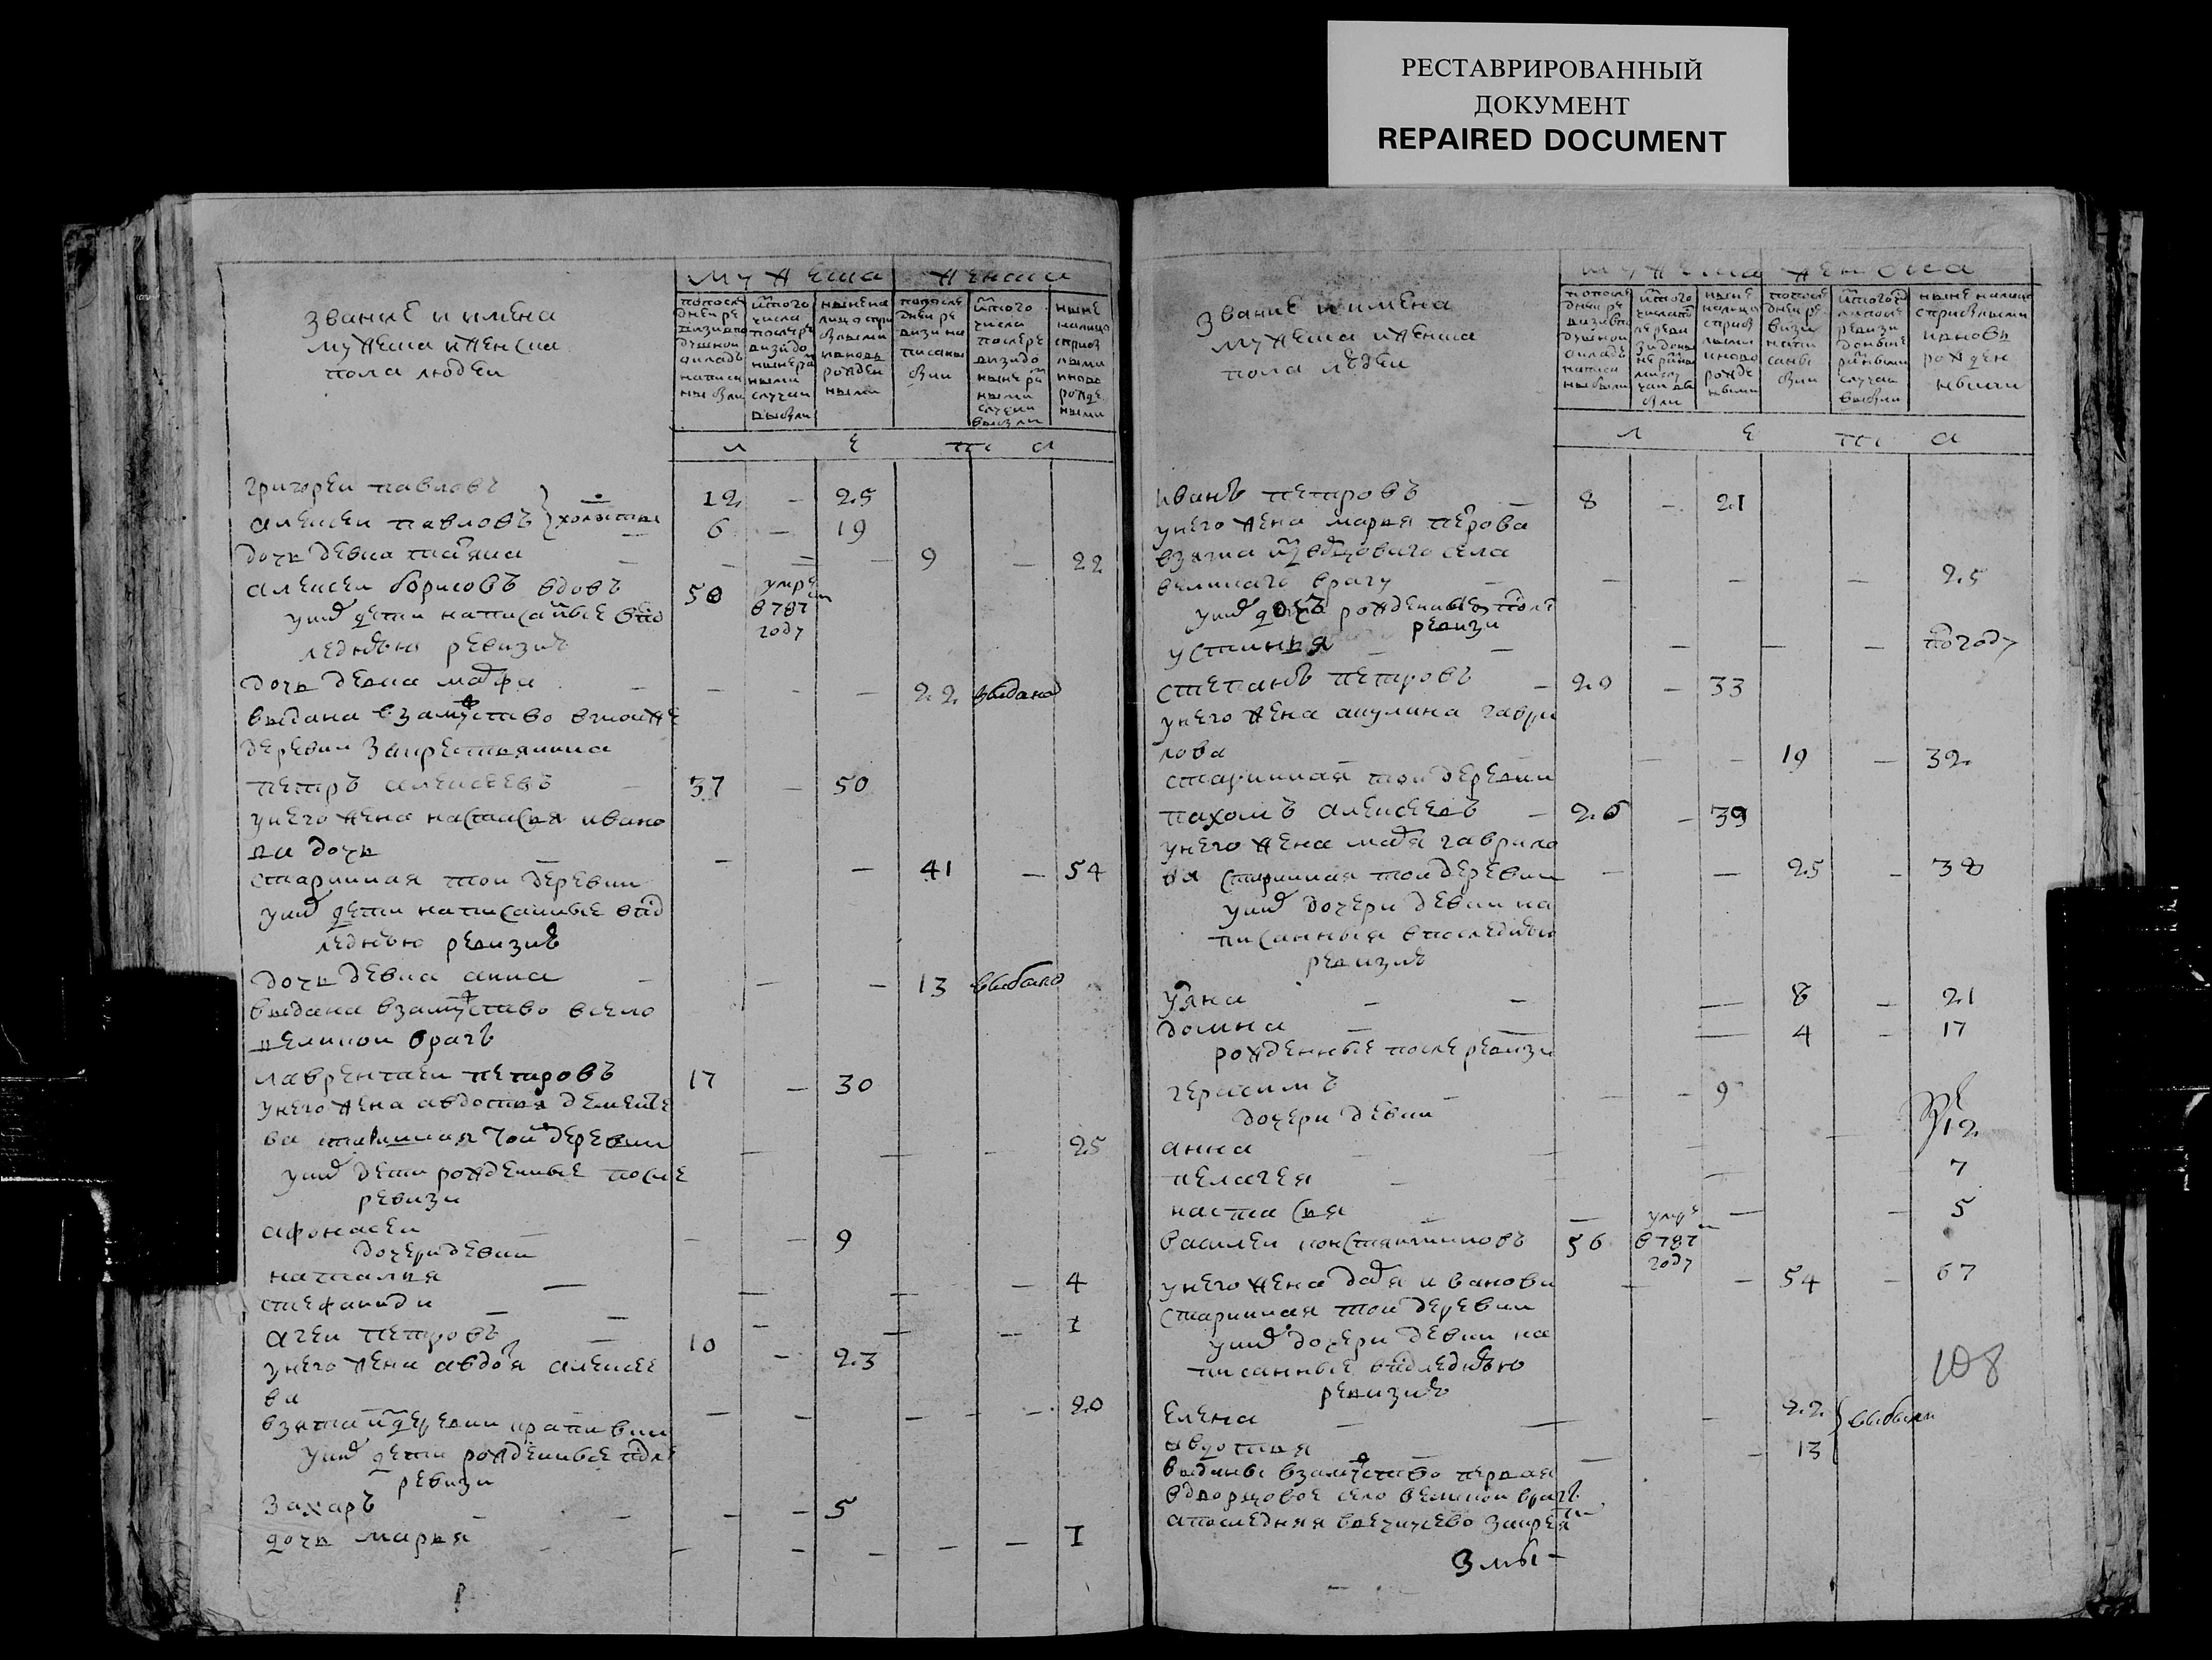 РЕСТАВРИРОВАННЫЙ
ДОКУМЕНТ
REPAIRED DOCUMENT
мужеска женска
звание и имена
мужеска и женска
пола людей
по после
дней ре
визии в по
душной
окладъ
написа
ны были
ис того
числа
после ре
визи до
ныне ра
ными
случаи
выбыли
ныне на
лицо с при
былыми
и вновь
рожден
ными
по после
дней ре
визи на
писаны
были
ис того
числа
после ре
визи до
ныне ра
ными
случаи
выбыли
ныне
налицо
с приб
лыми
и новь
рожде
ными
л е т а
григорей павловъ 12 - 25
алексей павловъ } холосты 6 - 19
дочь девка татьяна 9 - 22
алексей борисовъ вдовъ 50 умре в 787 году
у них дети написанные в пос
леднюю ревизию
дочь девка марфа 22 выдана
выдана взамужство в
деревни за крестьянина
петръ алексеевъ 37 - 50
у него жена настасья ивано
ва дочь 41 - 54
старинная той деревни
у них дети написанные в пос
леднюю ревизию
дочь девка анна 13 выбыла
выдана взамужство в село
великой врагъ
лаврентей петровъ 17 - 30
у него жена авдотья дементье
ва старинная той деревни 25
у них дети рожденные после
ревизи
афонасей 9
дочери девки
наталья 4
стефанида 1
агей петровъ 10 - 23
у него жена авдотья алексее
ва 20
взята из деревни крапивки
у них дети рожденные после
ревизи
захаръ 5
дочь марья 1
мужеска женска
звание и имена
мужеска и женска
пола людей
по после
дней ре
визи в по
душной
окладе
написа
ны были
ныне
налицо
с приб
лыми
и вновь
рожде
нными
по после
дней ре
визи
напи
саны
были
ныне налицо
с прибылыми
и вновь
рожден
ными
л е т а
иванъ петровъ 8 - 21
у него жена марья петрова
взята из дворцоваго села
великаго врагу 25
у них дочь рожденные после
ревизи
устинья полгоду
степанъ петровъ 20 - 33
у него жена акулина гаври
лова 19 - 32
старинная той деревни
пахомъ алексеевъ 26 - 39
у него жена марья гаврило
ва старинная той деревни 25 - 38
у них дочери девки на
писанныя в последнюю
ревизию
ульяна 8 - 21
домна 4 - 17
рожденные после ревизи
герасимъ 9
дочери девки
анна 12
пелагея 7
настасья 5
василей констянтиновъ 56 умре в 787 году
у него жена дарья иванова 54 - 67
старинная той деревни
у них дочери девки на
писанные в последнюю
ревизию
108
елена 22 } выбыли
авдотья 13
выданы взамужство первая
в дворцовое село великой врагъ
а последняя в